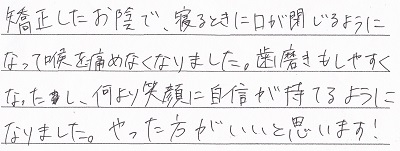 矯正したお陰で、寝るときに口が閉じるように
なって喉を痛めなくなりました。歯磨きもしやすく
なったし、何より笑顔に自信が持てるように
なりました。やった方がいいと思います!